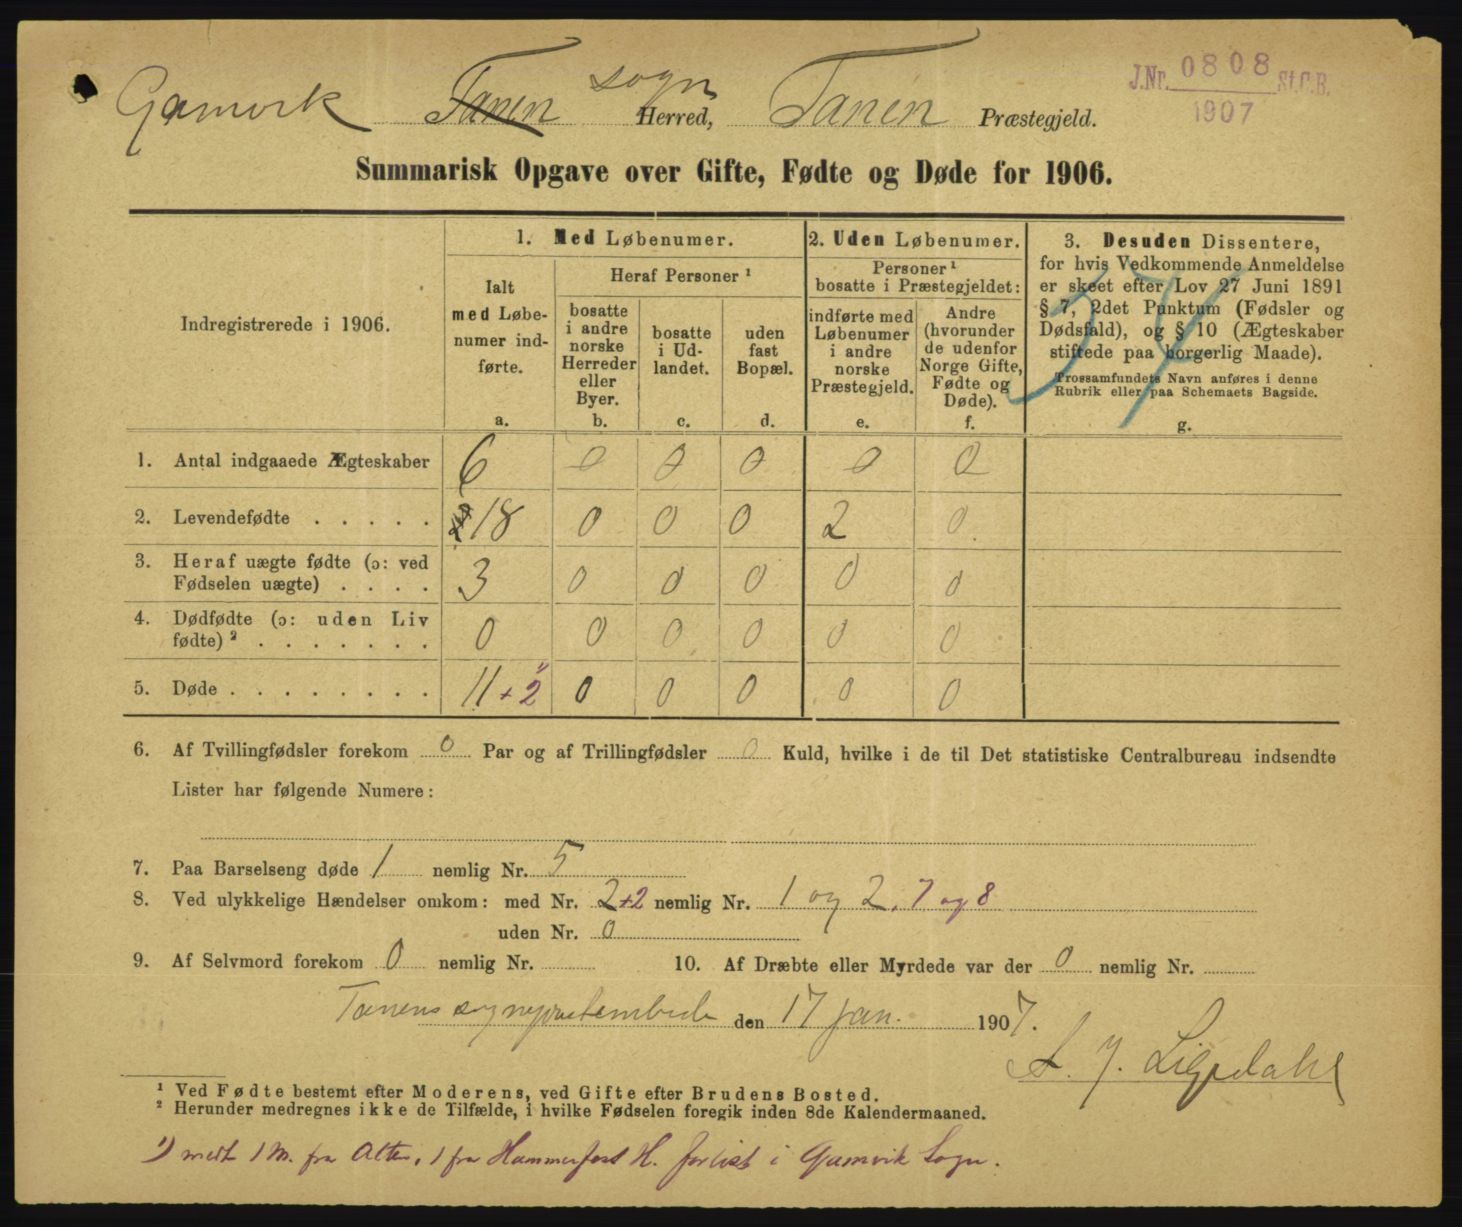 J.Nr. 0808 St.C.B.
1907
Gamvik Tanen sogn Herred, Tanen Præstegjeld.
Summarisk Opgave over Gifte, Fødte og Døde for 1906.
Indregistrerede i 1906.
1. Med Løbenumer.
Ialt
med Løbe-
numer ind-
førte.
a.
Heraf Personer ¹
bosatte
i andre
norske
Herreder
eller
Byer.
b.
bosatte
i Ud-
landet.
c.
uden
fast
Bopæl.
d.
2. Uden Løbenumer.
Personer ¹
bosatte i Præstegjeldet:
indførte med
Løbenumer
i andre
norske
Præstegjeld.
e.
Andre
(hvorunder
de udenfor
Norge Gifte,
Fødte og
Døde).
f.
3. Desuden Dissentere,
for hvis Vedkommende Anmeldelse
er skeet efter Lov 27 Juni 1891
§ 7, 2det Punktum (Fødsler og
Dødsfald), og § 10 (Ægteskaber
stiftede paa borgerlig Maade).
Trossamfundets Navn anføres i denne
Rubrik eller paa Schemaets Bagside.
g.
1. Antal indgaaede Ægteskaber 6 0 0 0 0 0
2. Levendefødte . . . . . 18 0 0 0 2 0
3. Heraf uægte fødte (ɔ: ved
Fødselen uægte) . . . . 3 0 0 0 0 0
4. Dødfødte (ɔ: uden Liv
fødte) ² . . . . . . . 0 0 0 0 0 0
5. Døde . . . . . . . . 11 + 2 0 0 0 0 0
6. Af Tvillingfødsler forekom 0 Par og af Trillingfødsler 0 Kuld, hvilke i de til Det statistiske Centralbureau indsendte
Lister har følgende Numere:
7. Paa Barselseng døde 1 nemlig Nr. 5
8. Ved ulykkelige Hændelser omkom: med Nr. 2+2 nemlig Nr. 1 og 2, 7 og 8
uden Nr. 0
9. Af Selvmord forekom 0 nemlig Nr. 10. Af Dræbte eller Myrdede var der 0 nemlig Nr.
Tanens sogneprestembede den 17 jan. 1907.
¹ Ved Fødte bestemt efter Moderens, ved Gifte efter Brudens Bosted.
² Herunder medregnes ikke de Tilfælde, i hvilke Fødselen foregik inden 8de Kalendermaaned.
1) medt 1 M. fra Alten, 1 fra Hammerfest H. forlist i Gamvik Sogn.